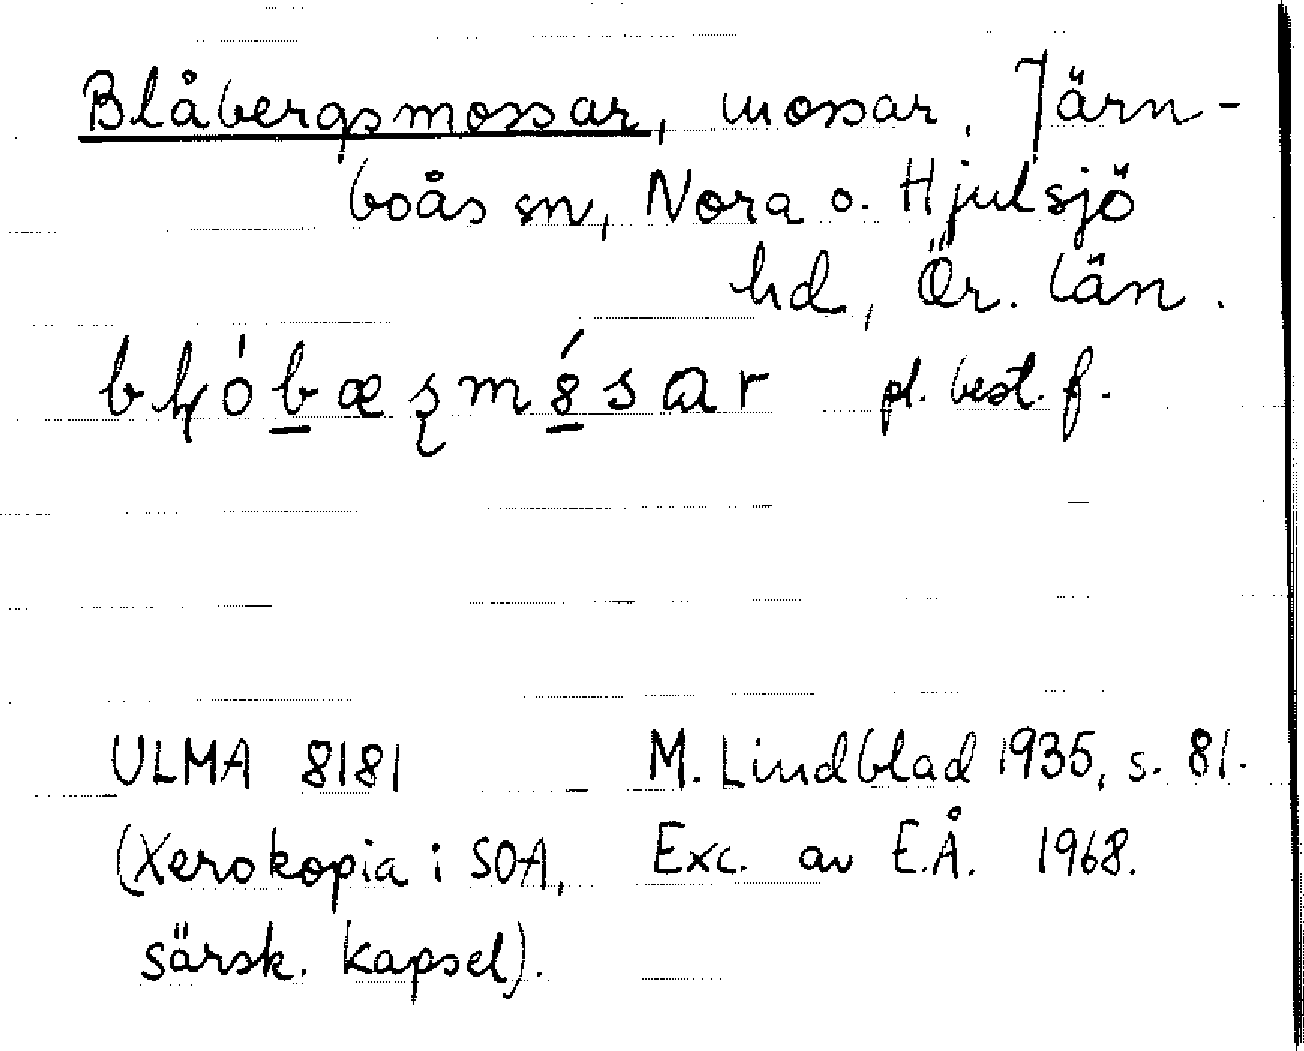 Blåbergsmossar, mossar, Järn-
boås sn, Nora o. Hjulsjö
hd, Ör. län.
pl. best. f.
ULMA 8181 M. Lindblad 1935, s. 81.
(Xerokopia i SOA, Exc. av E.Å. 1968.
särsk. kapsel).